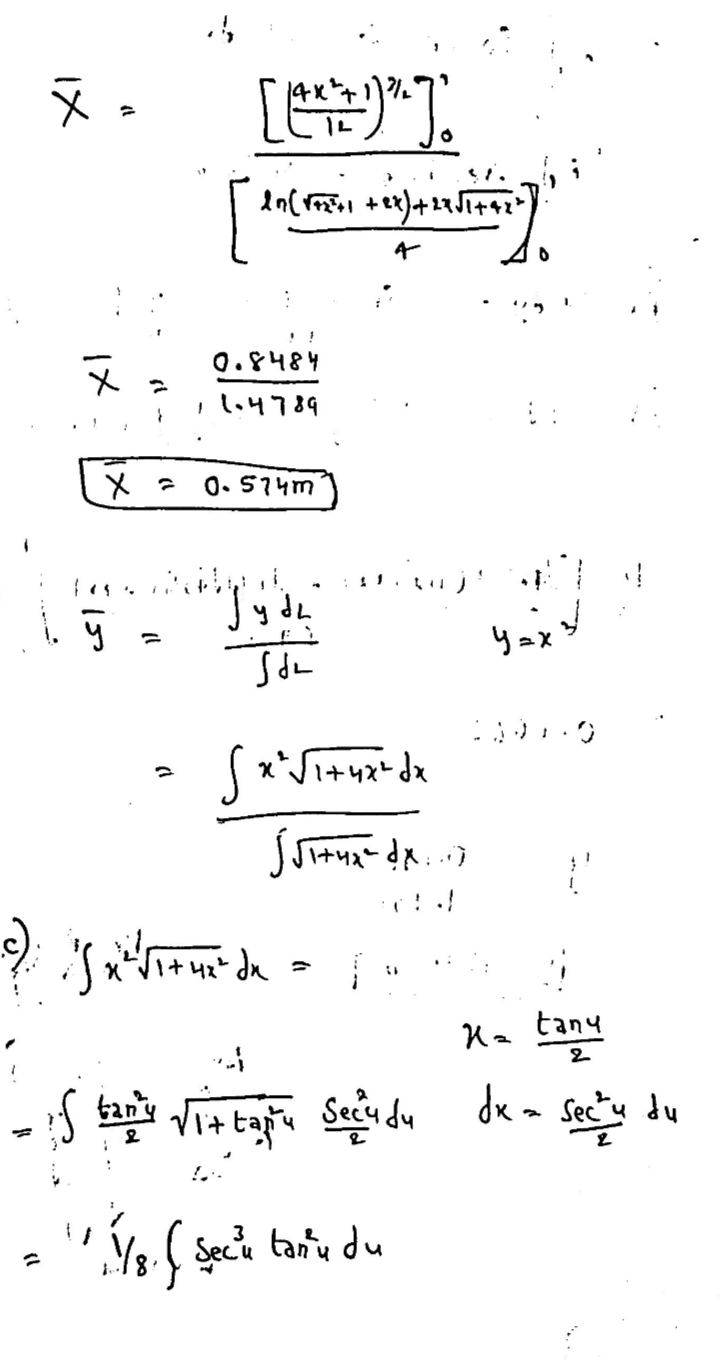 x̄ = [((4x²+1)/12)^(3/2)]₀¹ / [(ln(√4x²+1 + 2x) + 2x√1+4x²)/4]₀¹
x̄ = 0.8484 / 1.4789
x̄ = 0.574m
ȳ = ∫y dL / ∫dL    y=x²
= ∫x²√1+4x² dx / ∫√1+4x² dx
c) ∫x²√1+4x² dx =
x = tanu/2
= ∫ tan²u/2 √1+tan²u sec²u/2 du    dx = sec²u/2 du
= 1/8 ∫ sec³u tan²u du